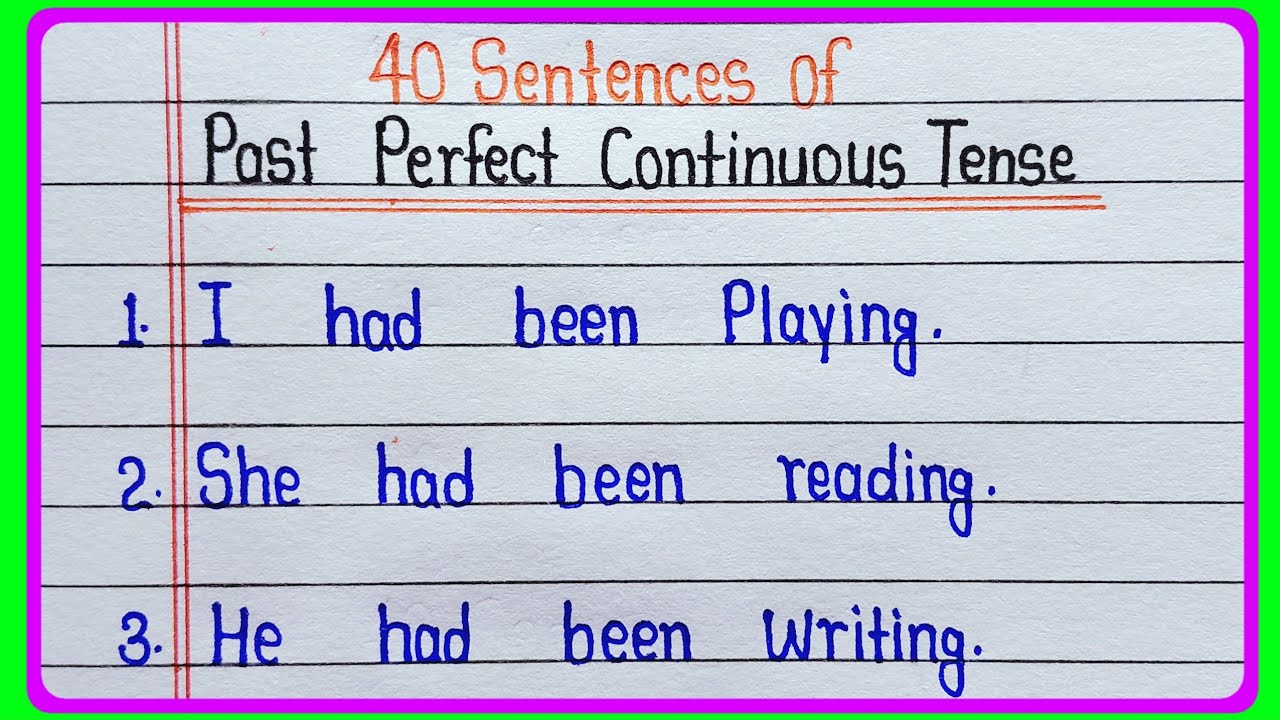 40 Sentences of
Past Perfect Continuous Tense
1. I had been Playing.
2. She had been reading.
3. He had been Writing.